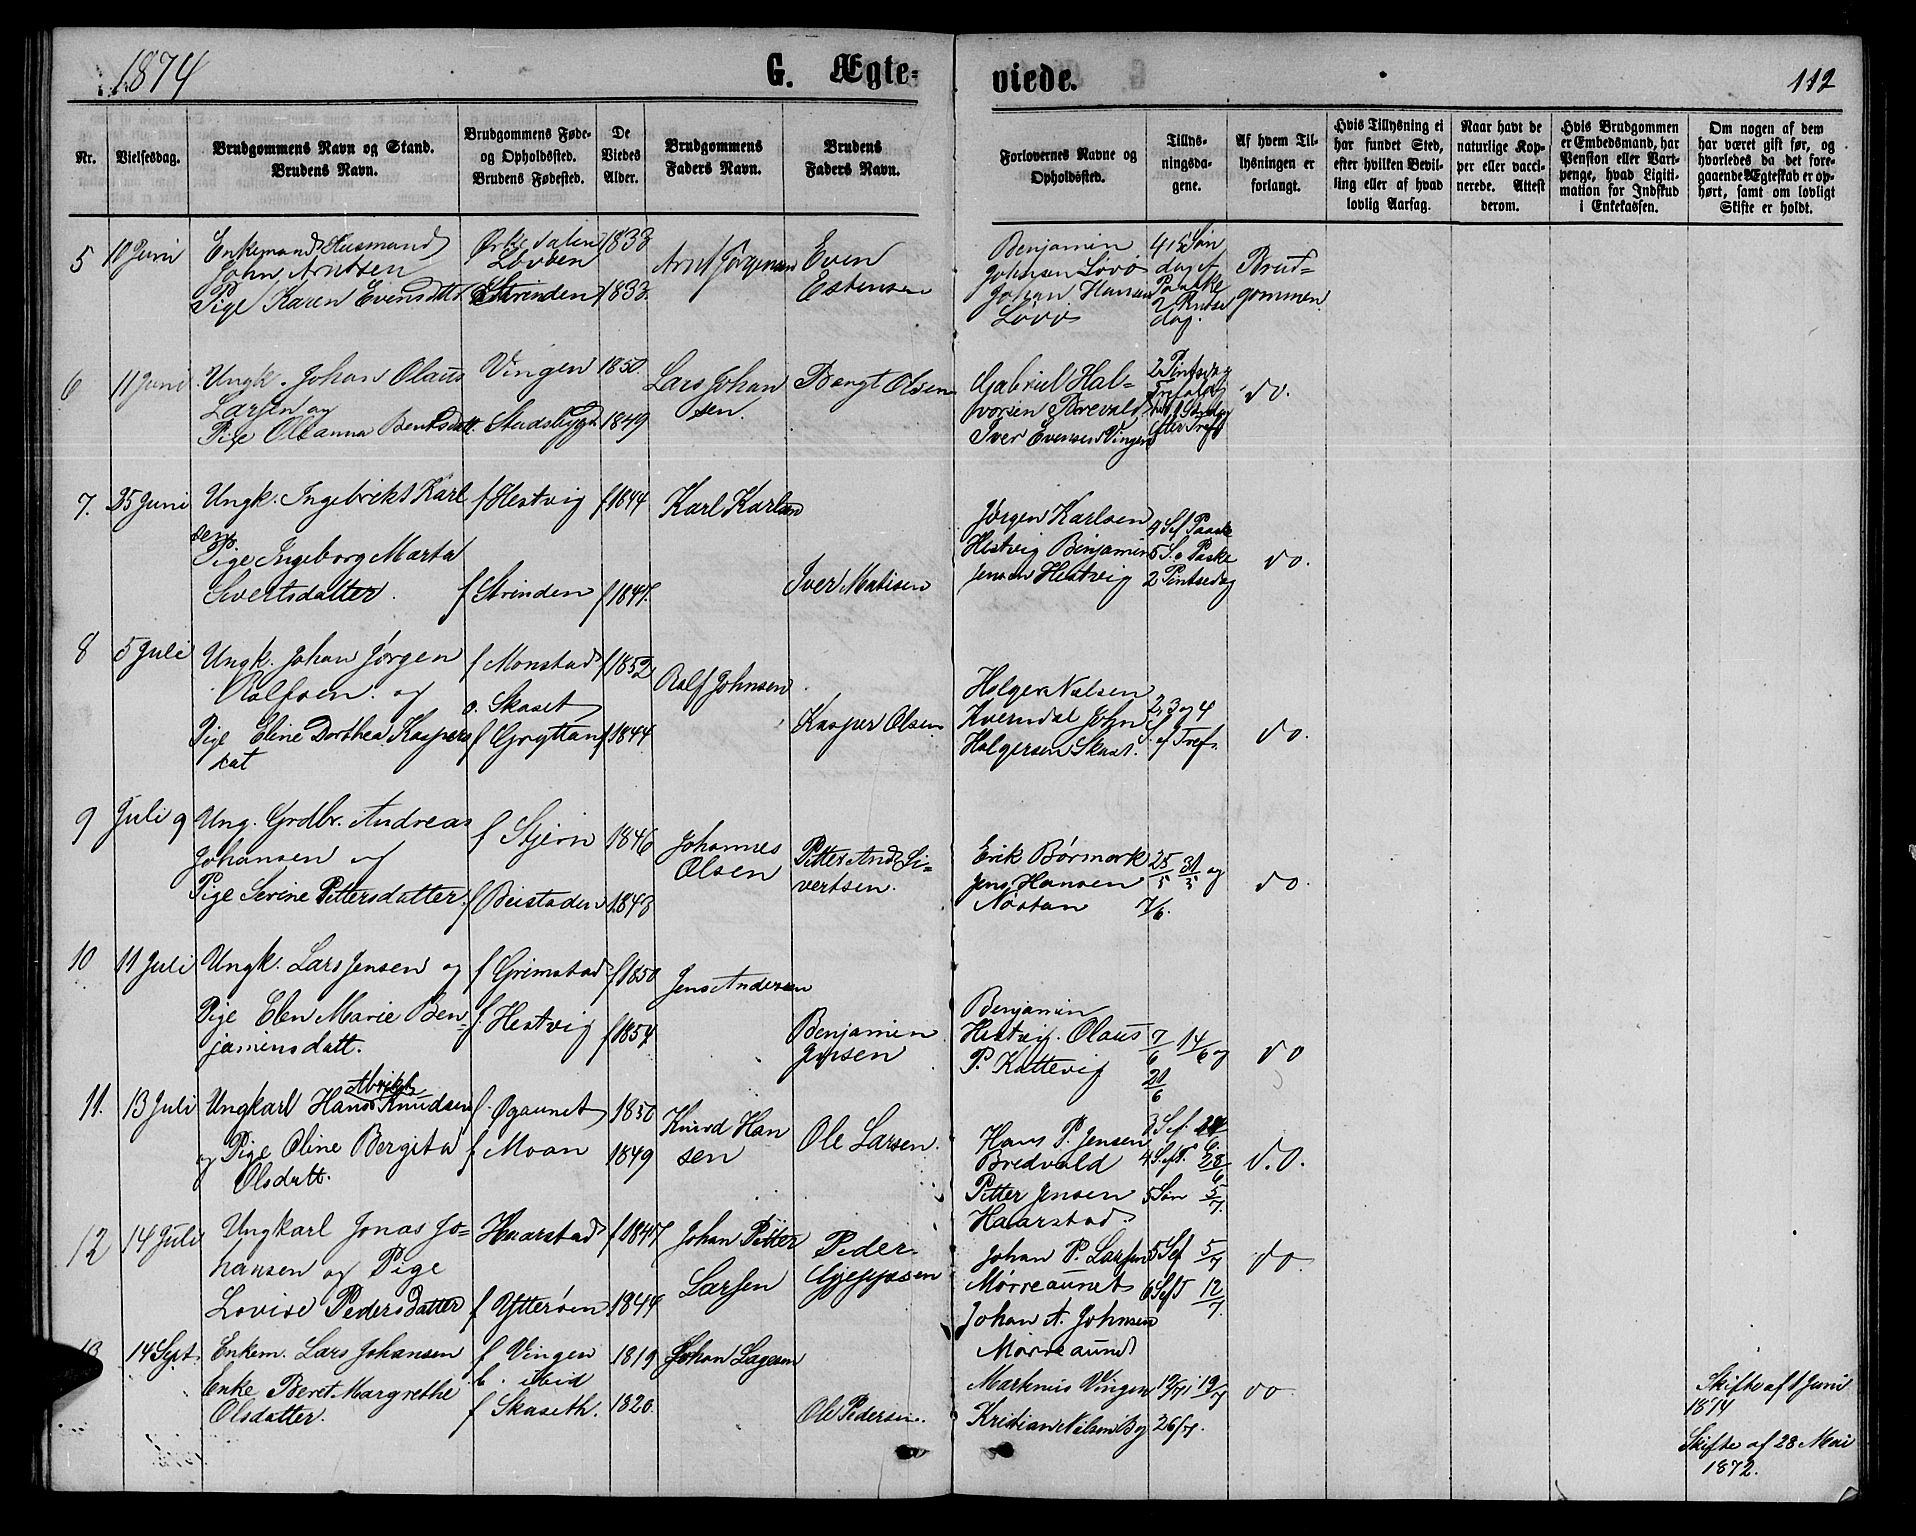 1874
G. Ægte-
viede.
112
Nr.
Vielsesdag.
Brudgommens Navn og Stand.
Brudens Navn.
Brudgommens Føde-
og Opholdssted.
Brudens Fødested.
De
Viedes
Alder.
Brudgommens
Faders Navn.
Brudens
Faders Navn.
Forlovernes Navne og
Opholdssted.
Tillys-
ningsda-
gene.
Af hvem Til-
lysningen er
forlangt.
Hvis Tillysning ei
har fundet Sted,
efter hvilken Bevil-
ling eller af hvad
lovlig Aarsag.
Naar havt de
naturlige Kop-
per eller vacci-
nerede. Attest
derom.
Hvis Brudgommen
er Embedsmand, har
Pension eller Vart-
penge, hvad Ligiti-
mation for Indskud
i Enkekassen.
Om nogen af dem
har været gift før, og
hvorledes da det fore-
gaaende Ægteskab er op-
hørt, samt om lovligt
Skifte er holdt.
5 10 Juni
Enkemand Husmand
John Arntsen
Pige Karen Evensdtr
Ørkedalen
Løvøen
Strinden
1833
1833
Arnt Jørgensen
Even
Estensen
Benjamin
Johnsen Løvø
Johan Hansen
Løvø
4 5 Søn
dag ef
Paaske
2 Pintse
dag.
Brud-
gommen
6 11 Juni
Ungk. Johan Olaus
Larsen og
Pige Oleanna Bentsdatt.
Vingen
Stadsbygd
1850
1849
Lars Johan
sen.
Bengt Olsen
Gabriel Hal-
vorsen Brevald
Iver Evensen Vingen
2 Pintsedag
do.
7. 25 Juni
Ungk. Ingebrikt Karl
sen
Pige Ingeborg Marta
Sivertsdatter.
f Hestvig
f Strinden
f 1844
f 1847.
Karl Karlsen
Iver Matisen
Jørgen Karlsen
Hestvig Binjamin
Jensen Hestvig
4 S ef Paaske
5 S. e Paske
2 Pintsedag
do.
8 5 Juli
Ungk. Johan Jørgen
Rolfsen og
Pige Eline Dorthea Kaspers
dat
f Monstad
o. Skaset
f Grytten
f 1852
f 1844
Rolf Johnsen
Kasper Olsen
Holger Nelsen
Kverndal John
Holgersen Skaset.
2, 3 og 4
S. ef Tref.
do.
9 Juli 9
Ung. Grdbr. Andreas
Johansen og
Pige Serine Pittersdatter.
f Stjørn
f Beistaden
1846
1843
Johannes
Olsen
Pitter And. Si-
vertsen.
Erik Børmark
Jens Hansen
Nøstan
25/5 31/5 og
7/6.
do.
10 11 Juli
Ungk. Lars Jensen og
Pige Elen Marie Ben-
jaminsdatt.
f Grimstad
f Hestvig
f 1850
f 1854
Jens Andersen
Benjamin
Jensen
Benjamin
Hestvig. Olaus
P. Kattevig
7/6 14/6 og
21/6
do
11. 13 Juli
Ungkarl Hans Knudsen
og Pige Oline Bergita
Olsdatt.
f. Øgaunet
f Moan
1850
1849
Knud Han
sen
Ole Larsen.
Hans P. Jensen
Bredvold
Pitter Jensen
Haarstad.
3 S ef 21/6
4 S. ef T. 28/6
5 Søn 5/7
d.o.
12 14 Juli
Ungkarl Jonas Jo-
hansen og Pige
Lovise Pedersdatter
Haarstad
f Ytterøen
f 1847
1844
Johan Pitter
Larsen
Peder
Jeppesen
Johan P. Larsen
Mørreaunet
Johan A. Johnsen
Mørreaunet
5 S ef 5/7
6 S ef T 12/7.
do.
13 14 Sept.
Enkem. Lars Johansen
Enke Beret Margrethe
Olsdatter.
f Vingen
b. ibid
f Skaseth.
1819
1820.
Johan Lagesen
Ole Pedersen.
Marknus Vingen
Kristian Nilsen By
12/7 19/7
26/7.
do
Skifte af 1 Juni
1874
Skifte af 28 Mai
1872.